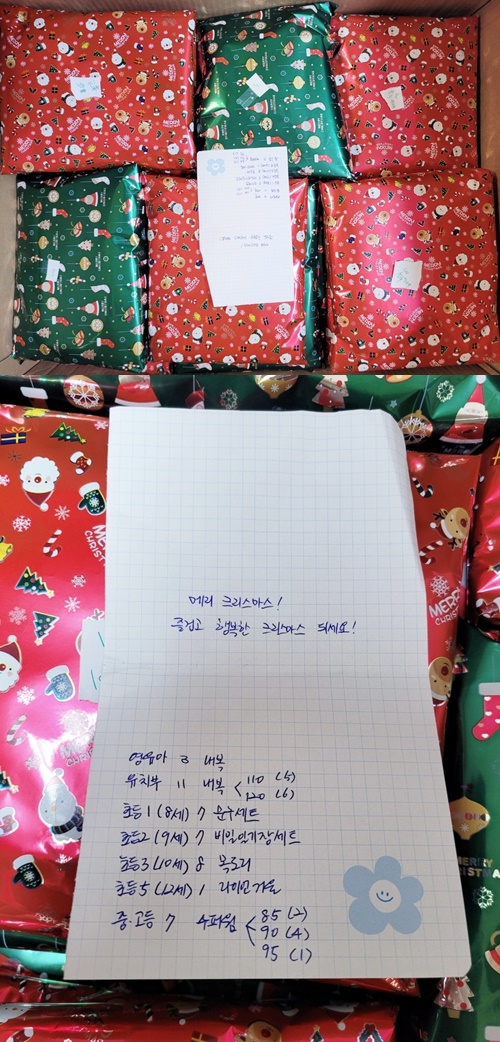 메리 크리스마스!
즐겁고 행복한 크리스마스 되세요!
영유아 3 내복
유치부 11 내복 < 110 (5)
120 (6)
초등1 (8세) 7 문구세트
초등2 (9세) 7 비밀일기장세트
초등3 (10세) 8 목도리
초등5 (12세) 1 라이언가운
중.고등 7 수파웜 < 85 (2)
90 (4)
95 (1)
MERRY CHRISTMAS